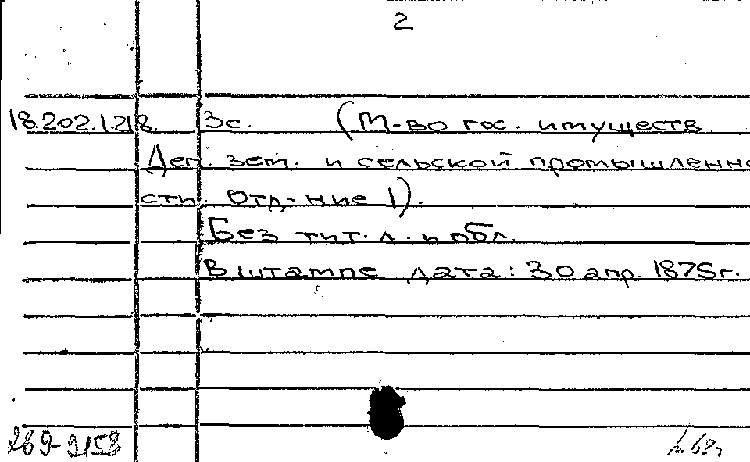 2
18.202.1.218. 3с. (М-во гос. имуществ.
Деп. зем. и сельской промышленно
сти. Отд-ние 1).
Без тит. л. и обл.
В штампе дата: 30 апр. 1875г.
269-3158